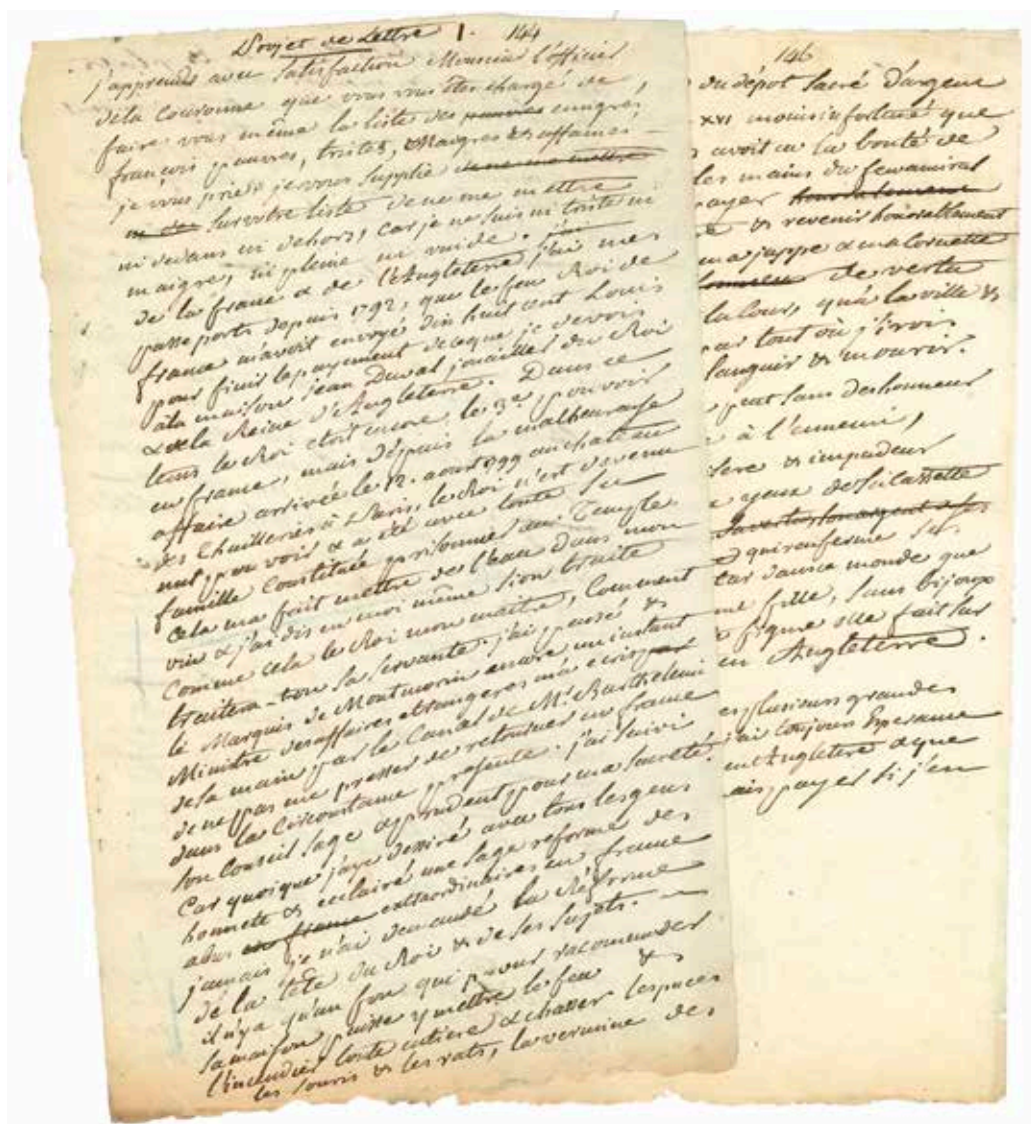 Projet de Lettre 1. 144
j'apprends avec Satisfaction Monsieur l'officier
dela Couronne que vous vous êtes chargé de
faire vous même la liste des pauvres emigrés,
françois pauvres, tristes, Maigres & affamés
je vous prie & je vous Supplie de ne me mettre
Sur votre liste de ne me mettre
ni dedans ni dehors, car je ne suis ni triste ni
maigre, ni pleine ni vuide. j'ai
de la france & de l'Angleterre j'ai mes
passeports depuis 1792, que le feu Roi de
france m'avoit envoyé dix huit cent Louis
pour finir le payement de ce que je devois
à la maison Jean Duval jouaillier du Roi
& de la Reine d'Angleterre. Dans ce
tems le Roi étoit encore le 3e. pouvoir
en france, mais depuis la malheureuse
affaire arrivée le 12. aoust 1799 au chateau
des Thuilleries à Paris, le Roi n'est devenu
nul pouvoir & a été avec toute Sa
famille Constitué prisonnier au Temple
Cela m'a fait mettre de l'eau dans mon
vin & j'ai dis en moi même Si on traite
Comme cela le Roi mon maitre, Comment
traitera-t-on Sa Servante. j'ai pensé &
le Marquis de Montmorin encore un instant
Ministre des affaires etrangeres m'a écris par
de sa main par le Canal de Mr. Barthelemi
de ne pas me presser de retourner en france
dans la Circonstance presente. j'ai Suivi
Son Conseil Sage & prudent pour ma Sureté.
Car quoique j'aye desiré avec tous les gens
honnete & éclairé une Sage reforme des
abus en france extraordinaires en france
jamais je n'ai demandé la Réforme
de la tête du Roi & de ses Sujets.
il n'y a qu'un fou qui pour racommoder
Sa maison puisse y mettre le feu &
l'incendier toute entiere & chasser les puces
les Souris & les rats, la vermine des
146
du dépot Sacré d'argent
XVI moins infortuné que
avoit eu la bonté de
les mains du feu amiral
payer
& revenir honorablement
ma juppe & ma Cornette
de vertu
la Cour, qu'à la ville &
par tout où j'irois
languir & mourir.
peut Sans deshonneur
à l'ennemi,
& impudeur
yeux de Sa Cassette
Son argent
qui renferme Ses
car dans ce monde que
une fille, Sans bijoux
figure elle fait Sur
en Angleterre.
plusieurs grandes
j'ai toujours Esperance
en Angleterre & que
payer Si j'en